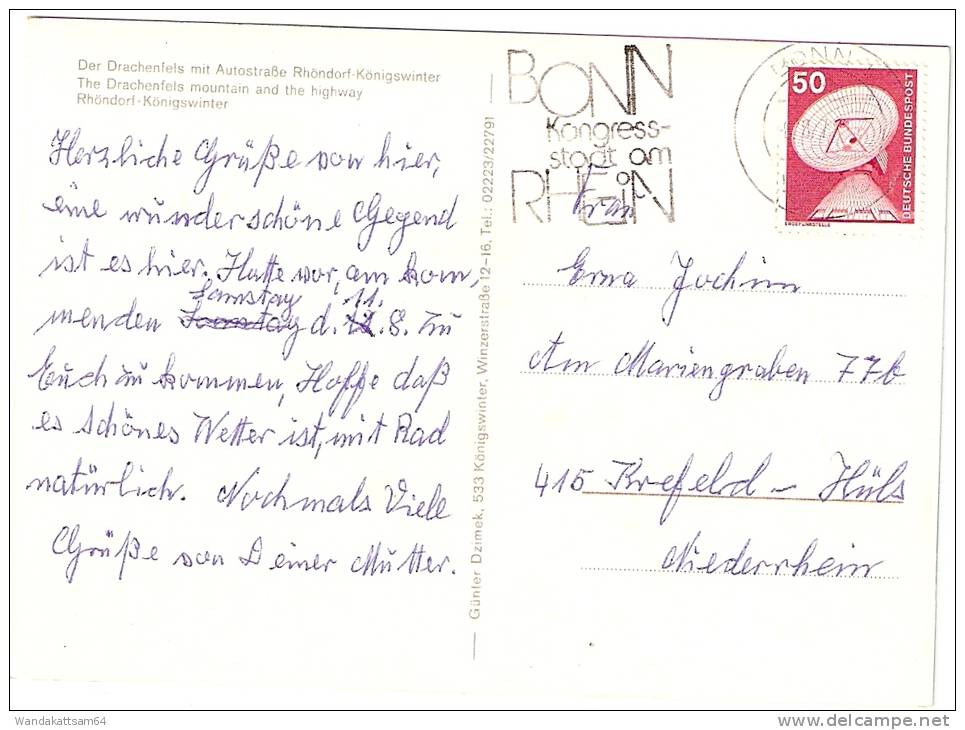 Der Drachenfels mit Autostraße Rhöndorf-Königswinter
The Drachenfels mountain and the highway
Rhöndorf-Königswinter
Herzliche Grüße von hier,
eine wunderschöne Gegend
ist es hier. Hatte vor, am kom,
Samstag 11.
menden d. .8. zu
Euch zu kommen, Hoffe daß
es schönes Wetter ist, mit Rad
natürlich. Nochmals Viele
Grüße von Deiner Mutter.
Günter Dzimek, 533 Königswinter, Winzerstraße 12-16, Tel.: 02223/22791
BONN
Kongress-
stadt am
RHEIN
BONN
50
DEUTSCHE BUNDESPOST
ERDEFUNKSTELLE
Frau
Erna Jochim
Am Mariengraben 77b
415 Krefeld - Hüls
Niederrhein
Wandakattsam64
www.delcampe.net